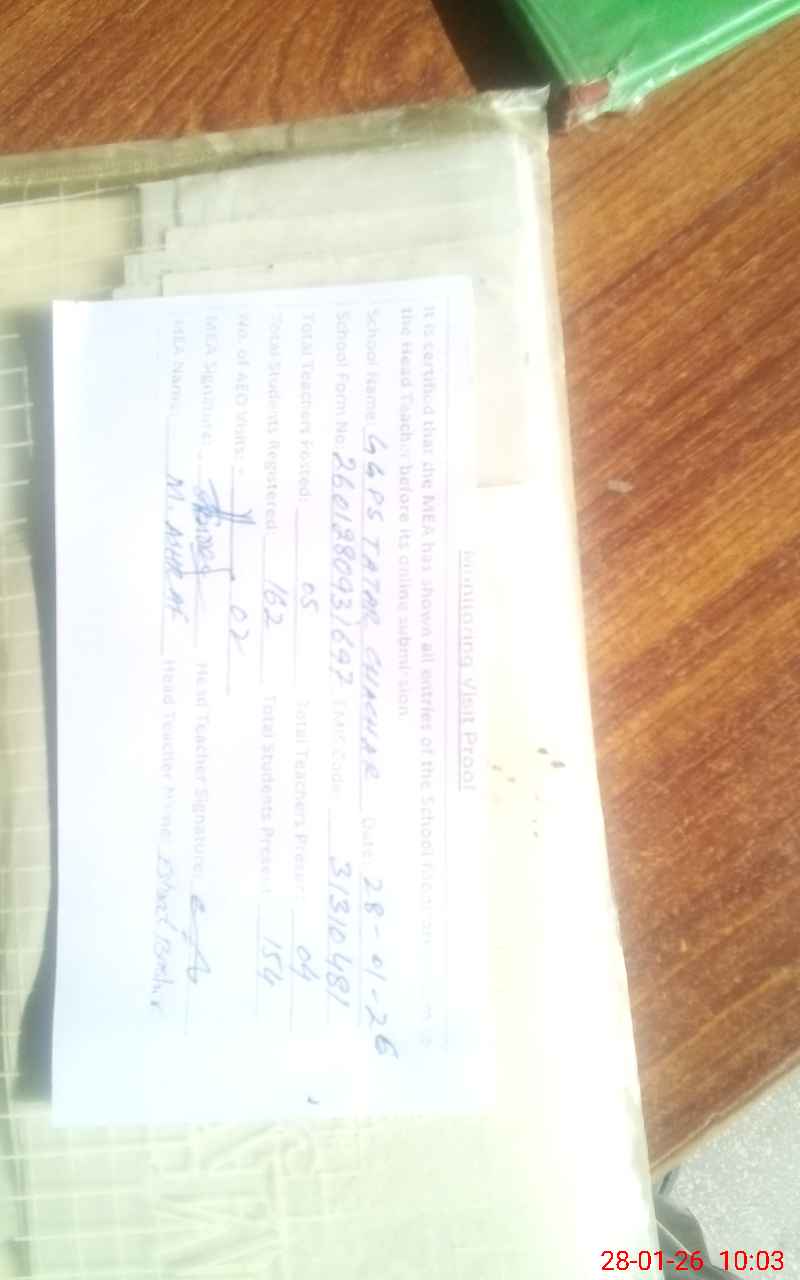 Monitoring Visit Proof
It is certified that the MEA has shown all entries of the School
the Head Teacher before its online submission.
School Name: GGPS TATAR CHACHAR Date: 28-01-26
School Form No: 2601280931697 EMIS Code: 31310481
Total Teachers Posted: 05 Total Teachers Present: 04
Total Students Registered 162 Total Students Present: 154
No. of AEO Visits: 02
MEA Signature: Head Teacher Signature:
MEA Name: M. ASHRAF Head Teacher Name: Bashir
28-01-26 10:03